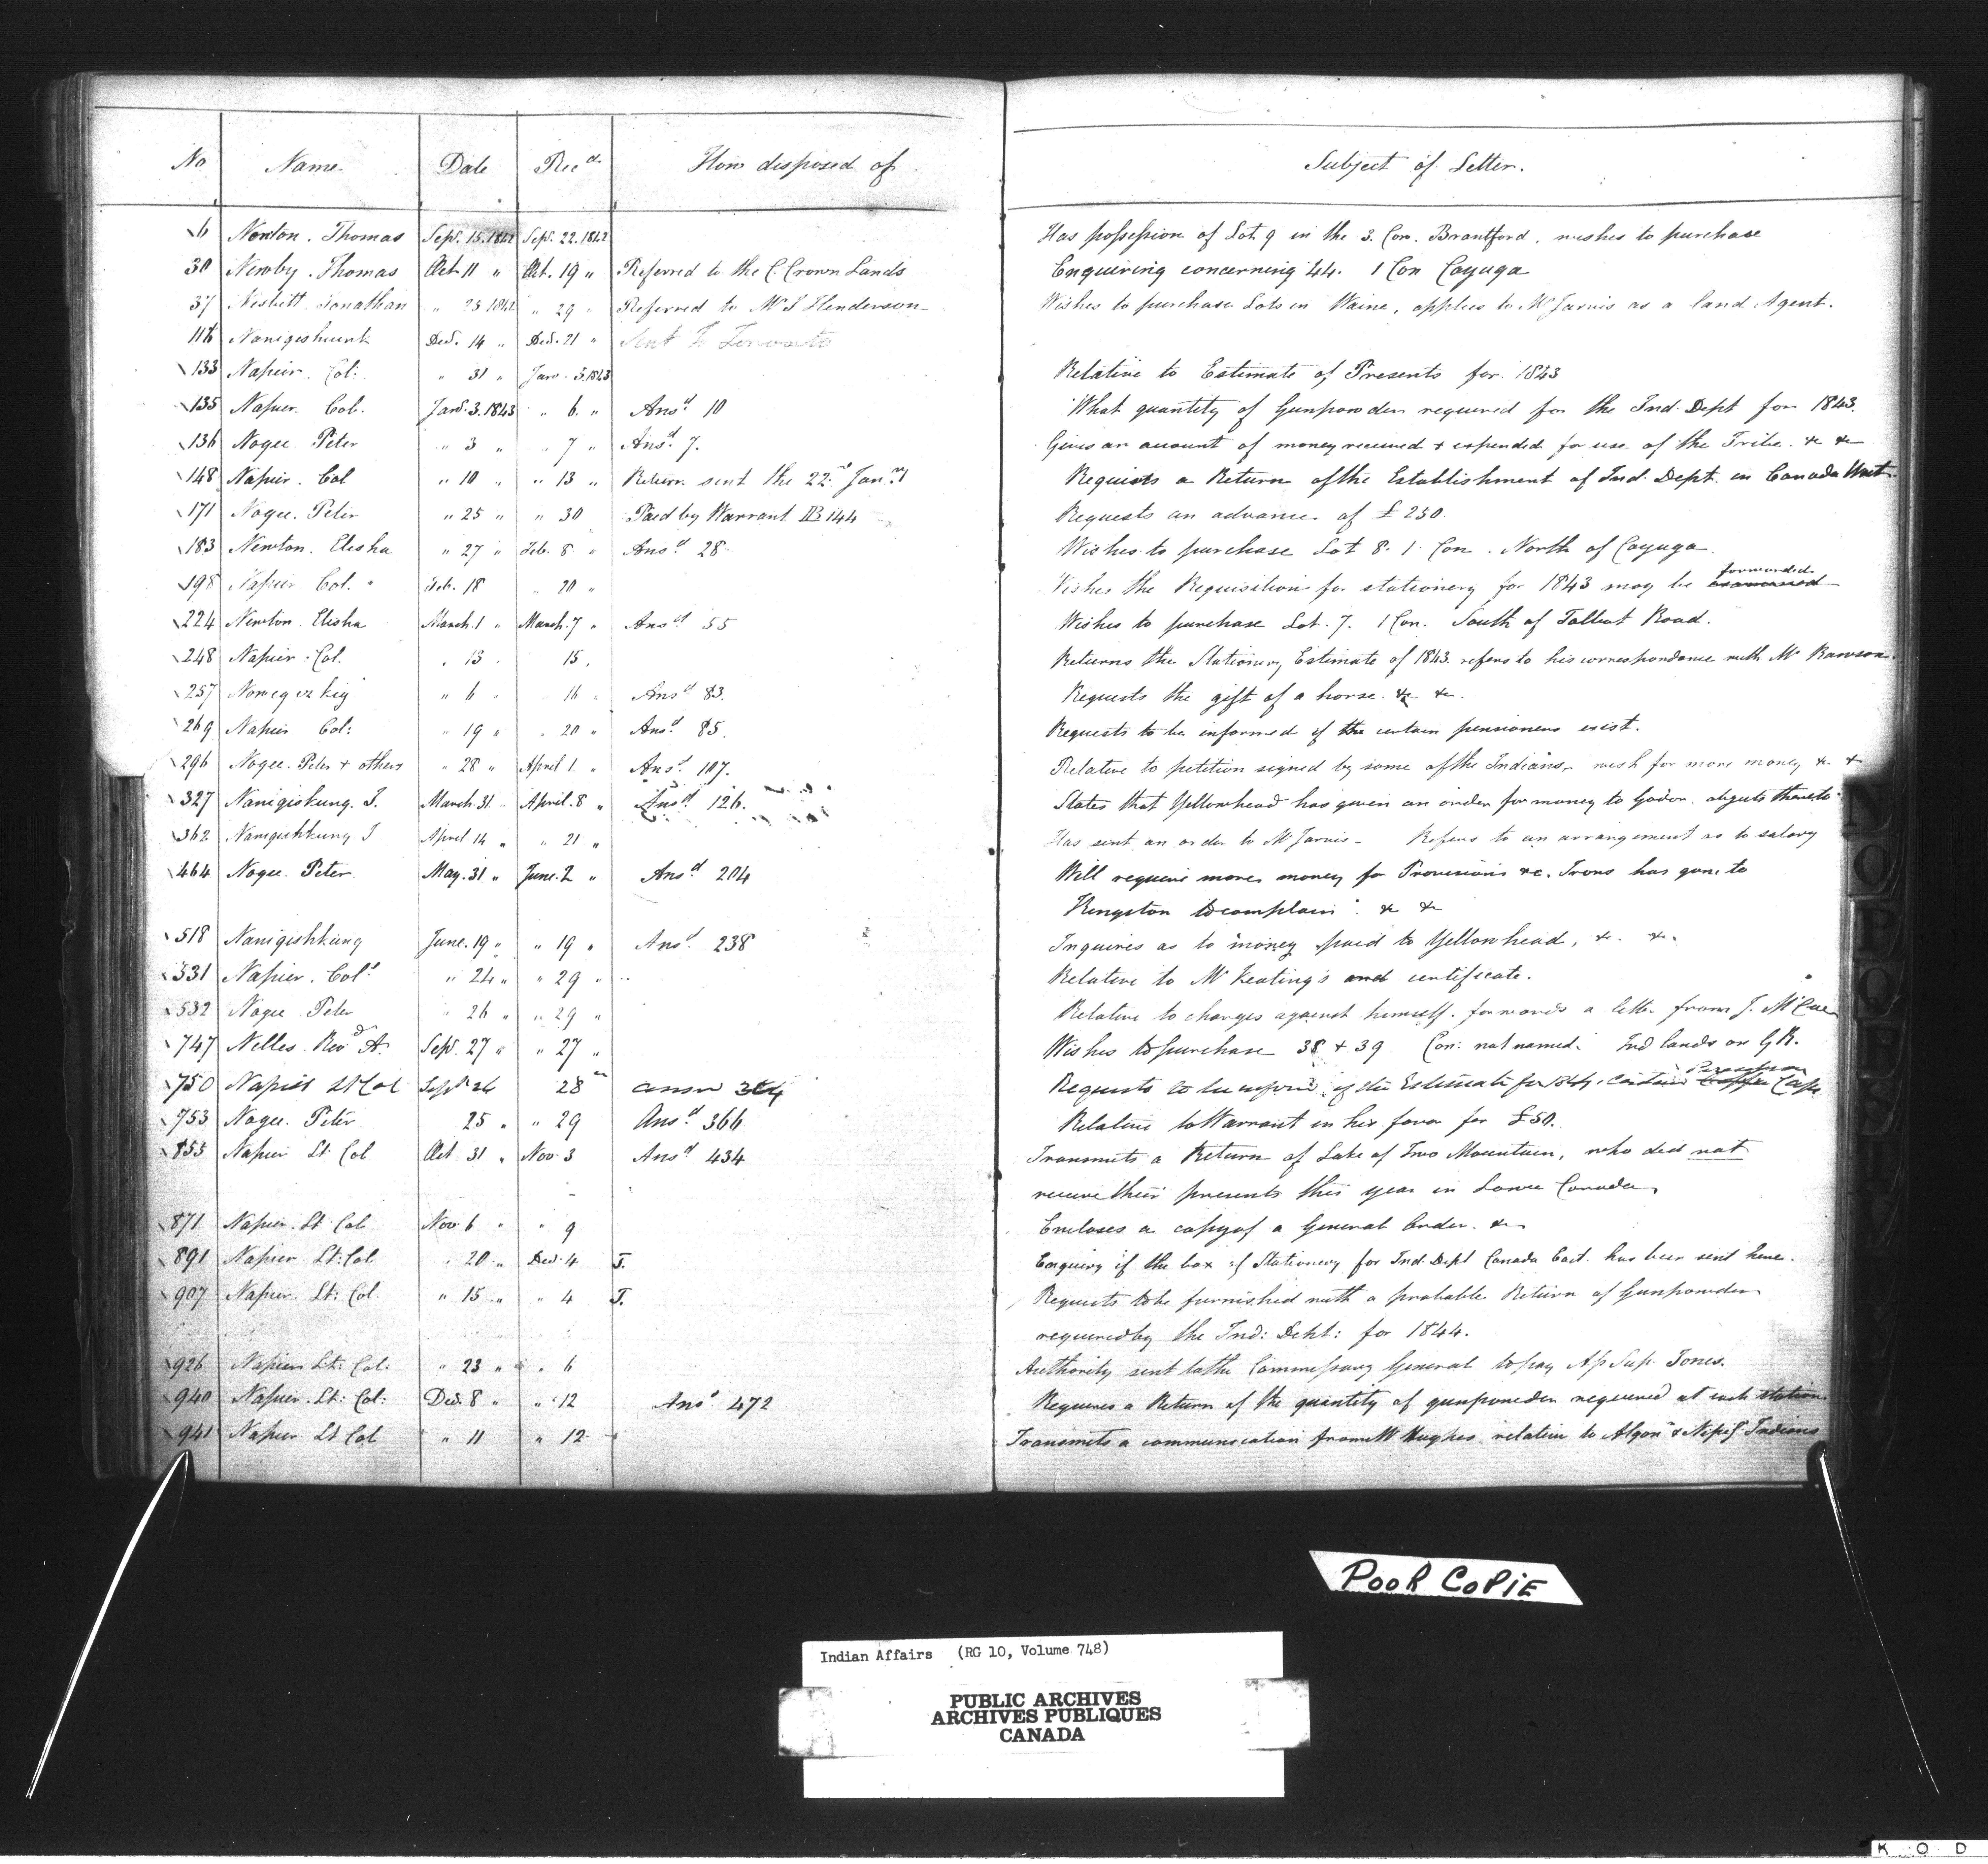 No Name Date Rec^d. How disposed of Subject of Letter.
6 Newton. Thomas Sept. 15. 1842 Sept. 22. 1842 Has possession of Lot 9 in the 3. Con. Brantford, wishes to purchase
30 Newby. Thomas Oct. 11 " Oct. 19 " Referred to the C. Crown Lands Enquiring concerning 44. 1 Con Cayuga
37 Nesbitt Jonathan " 25 1842 " 29 " Referred to Mr J Henderson Wishes to purchase Lots in Waine, applies to Mr Jarvis as a land Agent.
116 Nanigishkunk Dec. 14 " Dec. 21 " Sent to Toronto
133 Napier. Col: " 31 " Jany. 3. 1843 Relative to Estimate of Presents for 1843
135 Napier. Col. Jany. 3. 1843 " 6. " Ans^d 10 What quantity of Gunpowder required for the Ind. Dept for 1843.
136 Nogee. Peter " 3 " " 7 " Ans^d. 7. Gives an account of money received + expended for use of the Tribe. &c &c
148 Napier. Col " 10 " " 13 " Return sent the 22^nd Jan^ry Requests a Return of the Establishment of Ind. Dept. in Canada West.
171 Nogee. Peter " 25 " " 30 Paid by Warrant 144 Requests an advance of £250.
183 Newton. Elisha " 27 " Feb. 8 " Ans^d 28 Wishes to purchase Lot 8. 1 Con. North of Cayuga.
198 Napier Col. " Feb. 18 " 20 " Wishes the Requisition for stationery for 1843 may be forwarded
224 Newton. Elisha March. 1 " March. 7 " Ans^d 55 Wishes to purchase Lot. 7. 1 Con. South of Talbot Road.
248 Napier. Col. " 13 " 15. Returns the Stationery Estimate of 1843. refers to his correspondence with Mr Rawson.
257 " 6 " " 16 " Ans^d 83. Requests the gift of a horse. &c &c.
269 Napier Col: " 19 " " 20 " Ans^d 85. Requests to be informed if certain pensioners exist.
296 Nogee. Peter + others " 28 " April 1. " Ans^d. 107. Relative to petition signed by some of the Indians, wish for more money &c &c
327 Nanigishkung. J. March. 31 " April. 8 " Ans^d 126. States that Yellowhead has given an order for money to objects thereto.
362 Nanigishkung J April 14 " " 21 " Has sent an order to Mr Jarvis - Refers to an arrangement as to salary
464 Nogee. Peter May. 31 " June. 2 " Ans^d 204 Will require more money for Provisions &c. has gone to
Kingston to complain. &c &c
518 Nanigishkung June. 19 " " 19 " Ans^d. 238 Inquires as to money paid to Yellowhead, &c. &c.
531 Napier. Col^l " 24 " " 29 " Relative to Mr Keating's and certificate.
532 Nogee Peter " 26 " " 29 " Relative to charges against himself. forwards a letter from J. McCue
747 Nelles. Rev^d A. Sept. 27 " " 27 " Wishes to purchase 38 + 39 Con: not named. Ind lands on G R.
750 Napier Lt Col Sept 26 28 answ 364 Requests to be informed if the Estimate for contain Percussion Caps
753 Nogee. Peter 25 " " 29 Ans^d 366 Relative to Warrant in his favor for £50.
855 Napier Lt Col Oct 31 " Nov. 3 Ans^d 434 Transmits a Return of Lake of Two Mountain, who did not
receive their presents this year in Lower Canada.
871 Napier. Lt Col Nov 6 " " 9 Encloses a copy of a General Order. &c
891 Napier Lt: Col " 20 " Dec. 4 J. Enquiry if the box of Stationery for Ind Dept Canada East. has been sent here.
907 Napier. Lt: Col. " 15 " " 4 J. Requests to be furnished with a probable Return of Gunpowder
required by the Ind: Dept: for 1844.
926 Napier Lt: Col: " 23 " " 6 Authority sent to the Commissary General to pay Jones.
940 Napier. Lt: Col: Dec. 8 " " 12 Ans^d 472 Requires a Return of the quantity of gunpowder required at each station.
941 Napier Lt Col " 11 " 12 Transmits a communication from Mr Hughes relative to Algon^n & Nipis^g Indians
N
O
P
Q
R
S
T
V
Poor Copie
Indian Affairs (RG 10, Volume 748)
PUBLIC ARCHIVES
ARCHIVES PUBLIQUES
CANADA
K O D